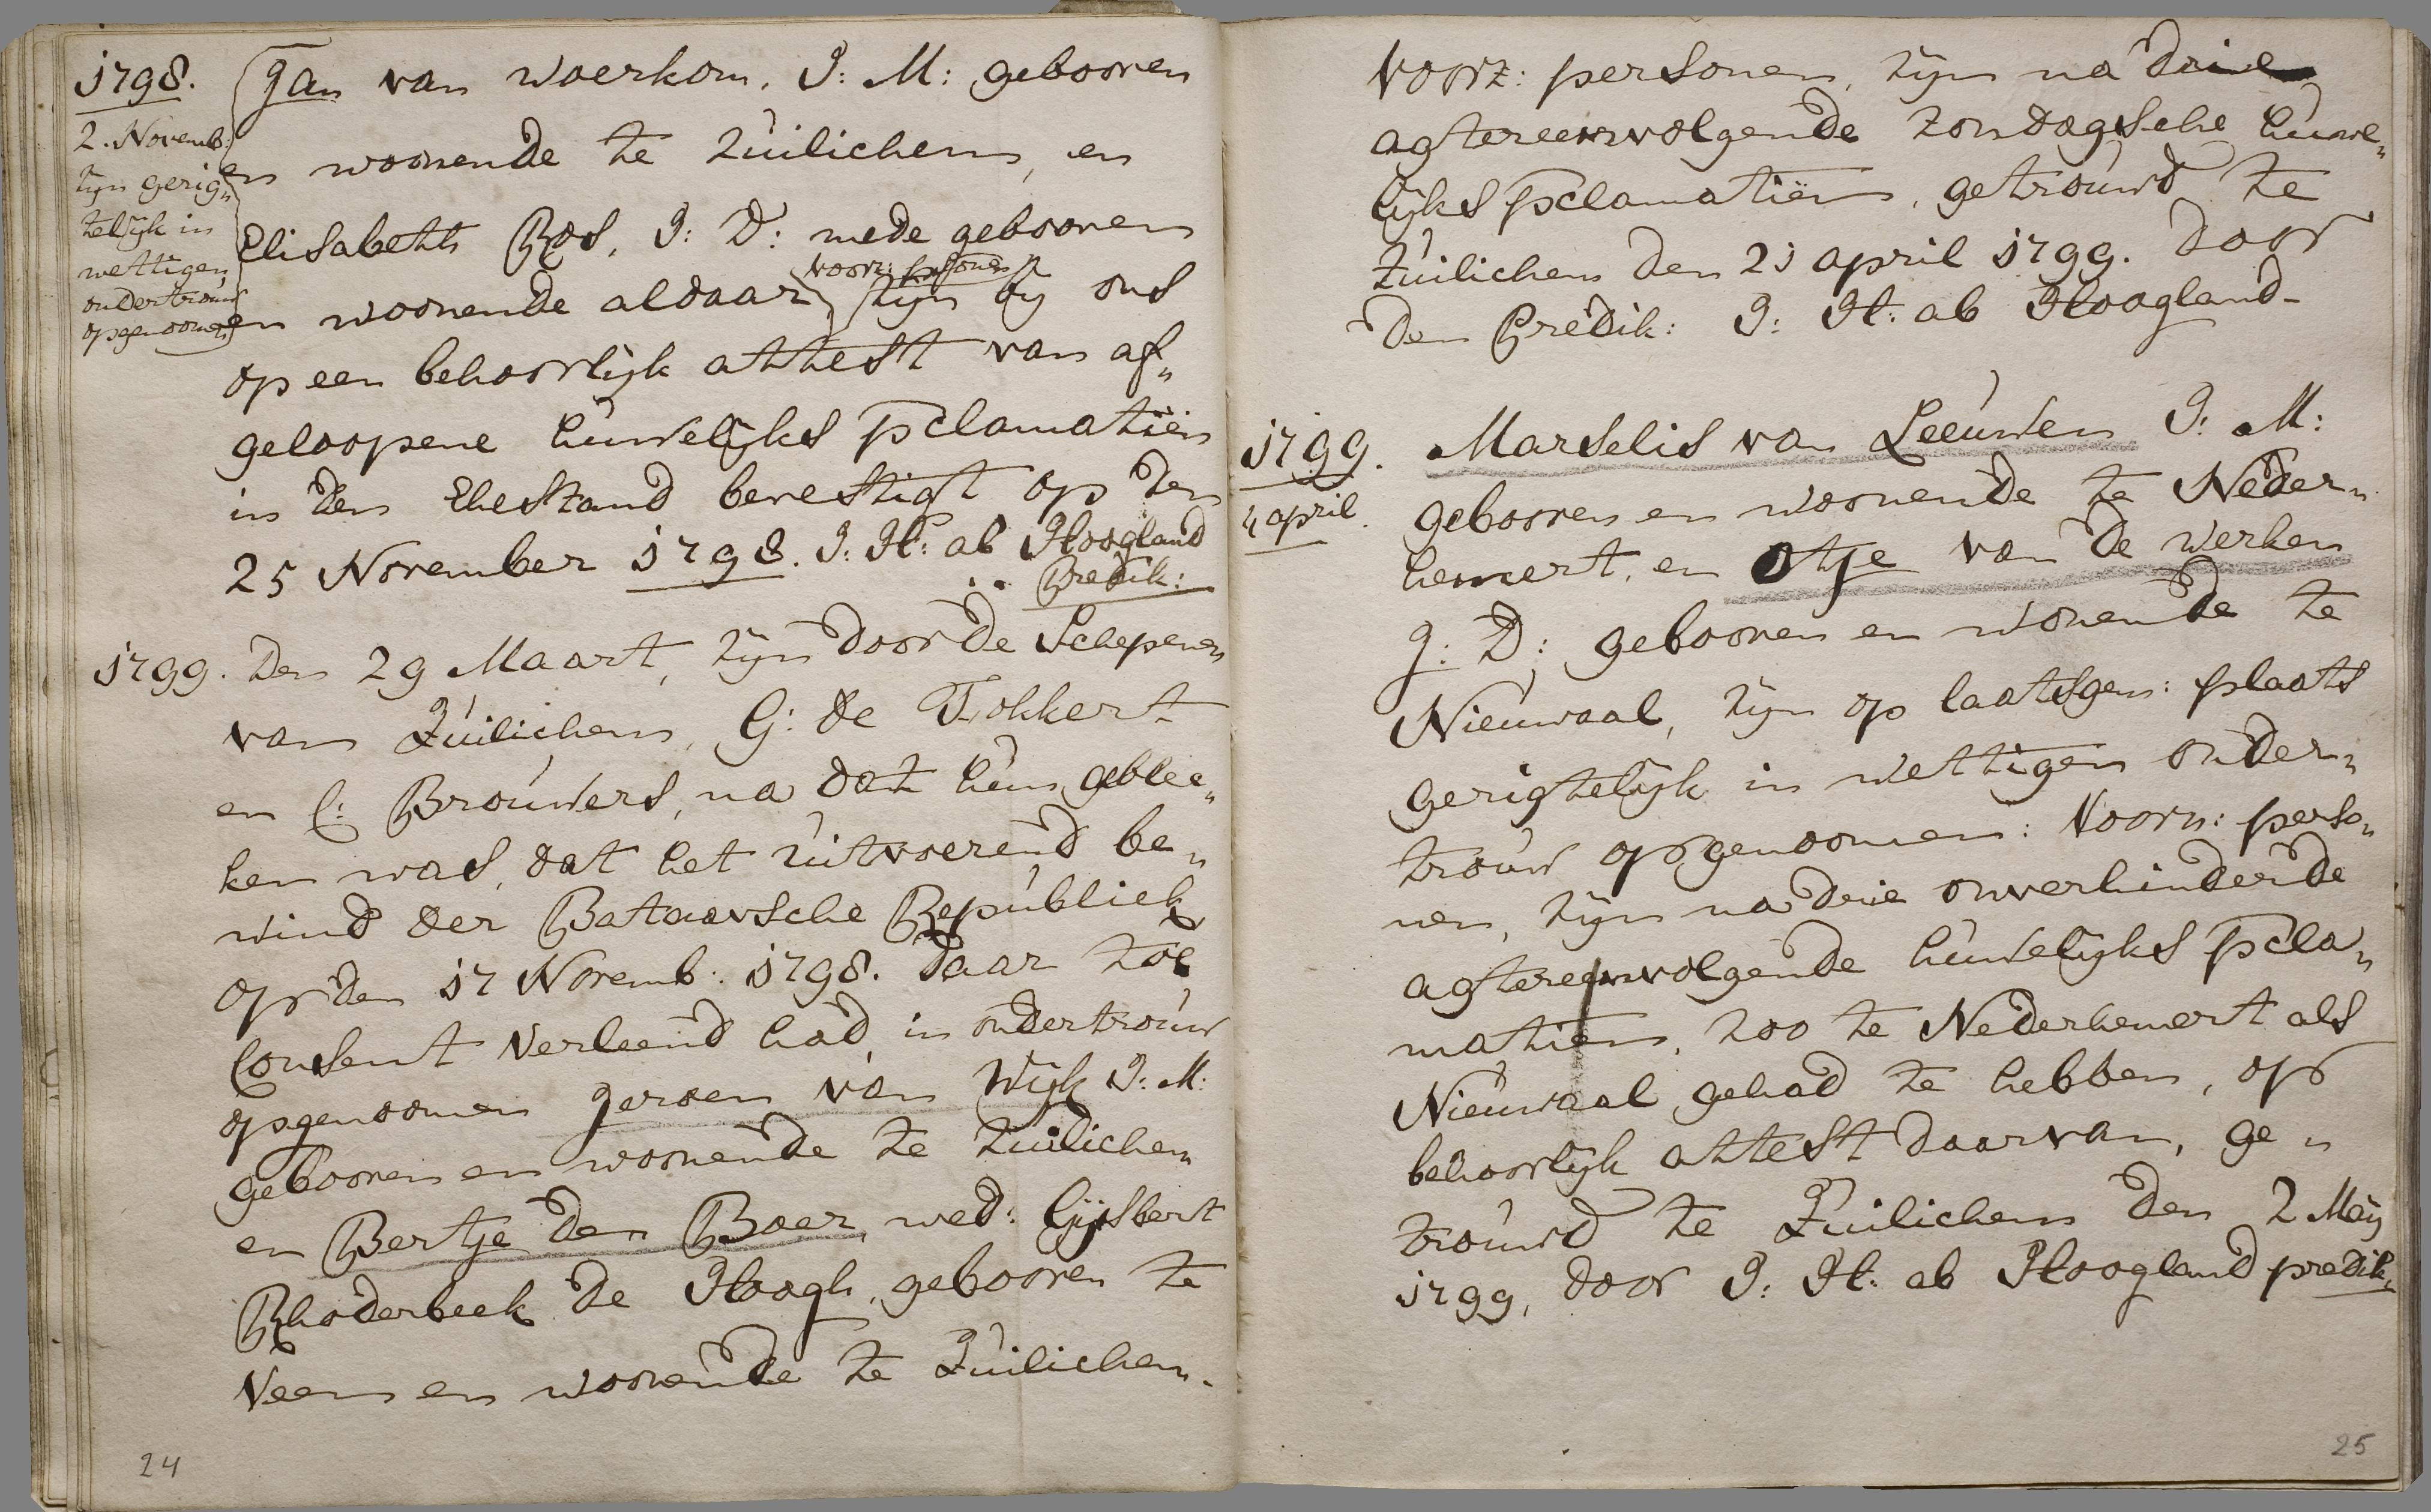 1798.
2. Novemb:
zyn gerig„
telyk in
wettigen
ondertrouw
opgenoomen
Jan van Woerkom, J: M: gebooren
en woonende te Zuilichem, en
Elisabeth Bos, J: D: mede gebooren
voorz: persoonen
en woonende aldaar, zyn by ons
op een behoorlyk attest van af„
geloopene huwelyks pclamatiën
in den Ehestand bevestigt op den
25 November 1798. J: H: ab Hoogland
Predik:
1799. den 29 Maart, zyn door de Schepenen
van Zuilichem, G: de Fokkert
en C: Brouwers, na dat hun geblee„
ken was, dat het uitvoerend be„
wind der Bataavsche Republiek
op den 17 Novemb: 1798. daar toe
Consent verleend had, in ondertrouw
opgenoomen Jeroen van Wijk J: M:
gebooren en woonende te Zuilichem
en Bertje den Boer, wed: Gijsbert
Rhoderbeek de Hoogh, gebooren te
Veen en woonende te Zuilichem.
24
voorz: personen, zyn na drie
agtereenvolgende zondagsche huwe„
lyks pclamatiën, getrouwd te
Zuilichem den 21 april 1799. door
den Predik: J: H: ab Hoogland
1799.
4 april.
Marselis van Leeuwen J: M:
gebooren en woonende te Neder„
hemert, en Otje van de Werken
J: D: gebooren en wonende te
Nieuwaal, zyn op laatstgen: plaats
gerigtelyk in wettigen onder„
trouw opgenoomen: Voorn: perso„
nen, zyn na drie onverhinderde
agtereenvolgende huwelyks pcla„
matien, zoo te Nederhemert als
Nieuwaal gehad te hebben, op
behoorlyk attest daarvan, ge„
trouwd te Zuilichem den 2 Meij
1799, door J: H: ab Hoogland predik„
25